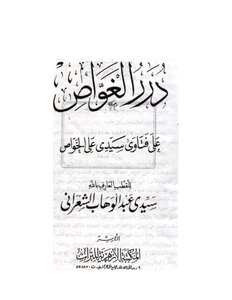 درر الغواص
على فتاوى سيدى على الخواص
للقطب العارف بالله
سيدى عبد الوهاب الشعرانى
الناشر
المكتبة الأزهرية للتراث